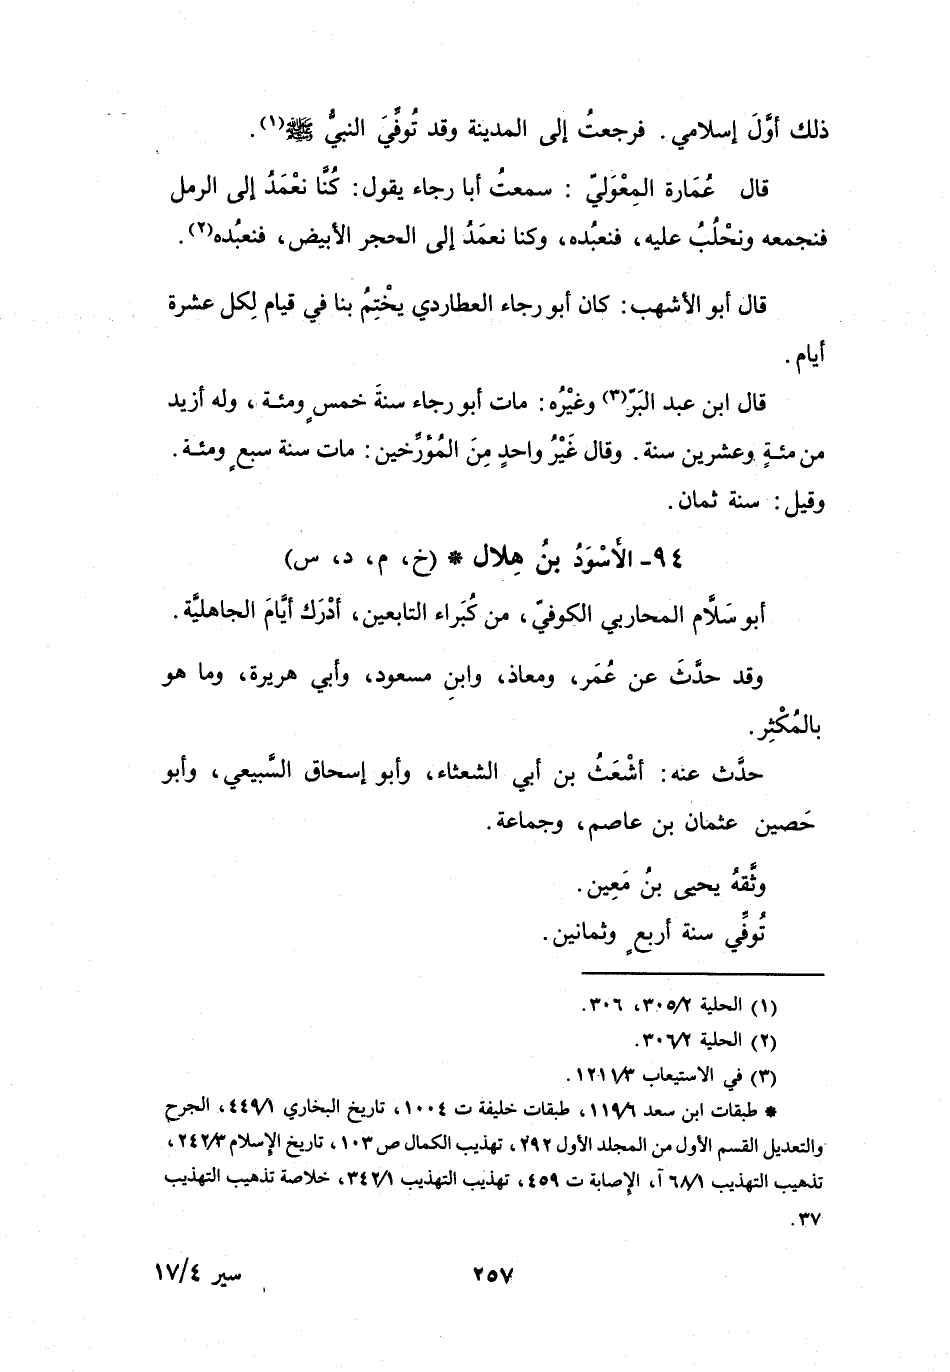 ذلك أوَّلَ إسلامي. فرجعتُ إلى المدينة وقد تُوفِّيَ النبيُّ ﷺ(١).
قال عُمَارة المِعْوَليّ : سمعتُ أبا رجاء يقول: كُنَّا نعْمَدُ إلى الرمل
فنجمعه ونحْلُبُ عليه، فنعبُده، وكنا نعمَدُ إلى الحجر الأبيض، فنعبُده(٢).
قال أبو الأشهب: كان أبو رجاء العطاردي يخْتِمُ بنا في قيام لِكل عشرة
أيام.
قال ابن عبد البَرّ(٣) وغيْرُه: مات أبو رجاء سنةَ خمسٍ ومئة، وله أزيد
من مئةٍ وعشرين سنة. وقال غَيْرُ واحدٍ مِنَ المُؤرِّخين: مات سنة سبعٍ ومئة.
وقيل: سنة ثمان.
٩٤- الأَسْوَدُ بنُ هِلال * (خ، م، د، س)
أبو سَلَّام المحاربي الكوفيّ، من كُبَراء التابعين، أدْرَك أيَّامَ الجاهليَّة.
وقد حدَّثَ عن عُمَر، ومعاذ، وابنِ مسعود، وأبي هريرة، وما هو
بالمُكْثِر.
حدَّث عنه: أشْعَثُ بن أبي الشعثاء، وأبو إسحاق السَّبيعي، وأبو
حَصين عثمان بن عاصم، وجماعة.
وثَّقهُ يحيى بنُ مَعِين.
تُوفِّي سنة أربعٍ وثمانين.
(١) الحلية ٣٠٥/٢، ٣٠٦.
(٢) الحلية ٣٠٦/٢.
(٣) في الاستيعاب ١٢١١/٣.
* طبقات ابن سعد ١١٩/٦، طبقات خليفة ت ١٠٠٤، تاريخ البخاري ٤٤٩/١، الجرح
والتعديل القسم الأول من المجلد الأول ٢٩٢، تهذيب الكمال ص ١٠٣، تاريخ الإسلام ٢٤٢/٣،
تذهيب التهذيب ٦٨/١ آ، الإصابة ت ٤٥٩، تهذيب التهذيب ٣٤٢/١، خلاصة تذهيب التهذيب
٣٧.
٢٥٧
سير ١٧/٤